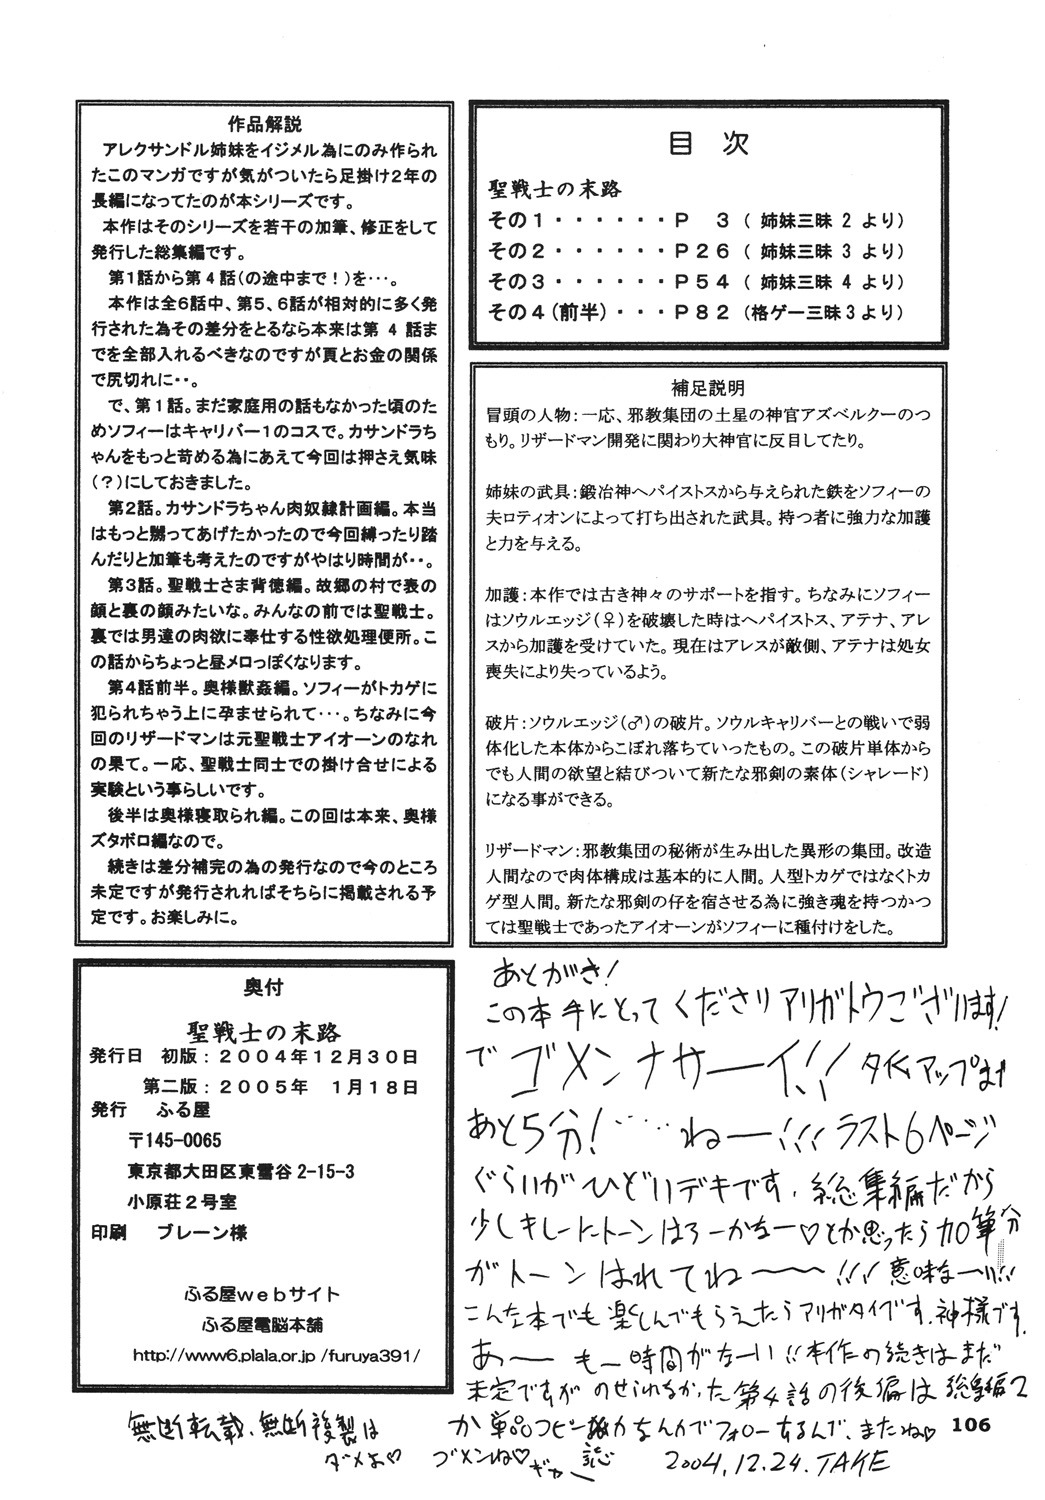 作品解説
アレクサンドル姉妹をイジメル為にのみ作られ
たこのマンガですが気がついたら足掛け2年の
長編になってたのが本シリーズです。
本作はそのシリーズを若干の加筆、修正をして
発行した総集編です。
第1話から第4話(の途中まで!)を‥・。
本作は全6話中、第5、6話が相対的に多く発
行された為その差分をとるなら本来は第 4 話ま
でを全部入れるべきなのですが頁とお金の関係
で尻切れに‥。
で、第1話。まだ家庭用の話もなかった頃のた
めソフィーはキャリバー1のコスで。カサンドラち
ゃんをもっと苛める為にあえて今回は押さえ気味
(?)にしておきました。
第2話。カサンドラちゃん肉奴隷計画編。本当
はもっと嬲ってあげたかったので今回縛ったり踏
んだりと加筆も考えたのですがやはり時間が‥。
第3話。聖戦士さま背徳編。故郷の村で表の
顔と裏の顔みたいな。みんなの前では聖戦士。
裏では男達の肉欲に奉仕する性欲処理便所。こ
の話からちょっと昼メロっぽくなります。
第4話前半。奥様獣姦編。ソフィーがトカゲに
犯られちゃう上に孕ませられて‥・。ちなみに今
回のリザードマンは元聖戦士アイオーンのなれ
の果て。一応、聖戦士同士での掛け合せによる
実験という事らしいです。
後半は奥様寝取られ編。この回は本来、奥様
ズタボロ編なので。
続きは差分補完の為の発行なので今のところ
未定ですが発行されればそちらに掲載される予
定です。お楽しみに。
目 次
聖戦士の末路
その1・・・・・・P 3 ( 姉妹三昧 2 より)
その2・・・・・・P26 ( 姉妹三昧 3 より)
その3・・・・・・P54 ( 姉妹三昧 4 より)
その4(前半)・・・P82 (格ゲー三昧3より)
補足説明
冒頭の人物:一応、邪教集団の土星の神官アズベルクーのつ
もり。リザードマン開発に関わり大神官に反目してたり。
姉妹の武具:鍛冶神ヘパイストスから与えられた鉄をソフィーの
夫ロティオンによって打ち出された武具。持つ者に強力な加護
と力を与える。
加護:本作では古き神々のサポートを指す。ちなみにソフィー
はソウルエッジ(♀)を破壊した時はヘパイストス、アテナ、アレ
スから加護を受けていた。現在はアレスが敵側、アテナは処女
喪失により失っているよう。
破片:ソウルエッジ(♂)の破片。ソウルキャリバーとの戦いで弱
体化した本体からこぼれ落ちていったもの。この破片単体から
でも人間の欲望と結びついて新たな邪剣の素体(シャレード)
になる事ができる。
リザードマン:邪教集団の秘術が生み出した異形の集団。改造
人間なので肉体構成は基本的に人間。人型トカゲではなくトカ
ゲ型人間。新たな邪剣の仔を宿させる為に強き魂を持つかつ
ては聖戦士であったアイオーンがソフィーに種付けをした。
奥付
聖戦士の末路
発行日 初版:2004年12月30日
第二版:2005年 1月18日
発行 ふる屋
〒145-0065
東京都大田区東雪谷2-15-3
小原荘2号室
印刷 ブレーン様
ふる屋webサイト
ふる屋電脳本舗
http://www6.plala.or.jp /furuya391/
あとがき!
この本手にとってくださりアリガトウございます!
でゴメンナサーイ!! タイムアップまで
あと5分!‥‥ねー!!!ラスト6ページ
ぐらいがひどいデキです。総集編だから
少しキレーにトーンはろーかなー♡とか思ったら加筆分
がトーンはれてねー〜〜!!!意味なーい!!
こんな本でも楽しんでもらえたらアリガタイです。神様です。
あー〜 もー時間がなーい!!本作の続きはまだ
未定ですがのせられなかった第4話の後編は総集編2
か単品コピー誌なんかでフォローするんで、またね♡
ゴメンね♡ ギャー
2004.12.24.TAKE
無断転載、無断複製は
ダメよ♡
106